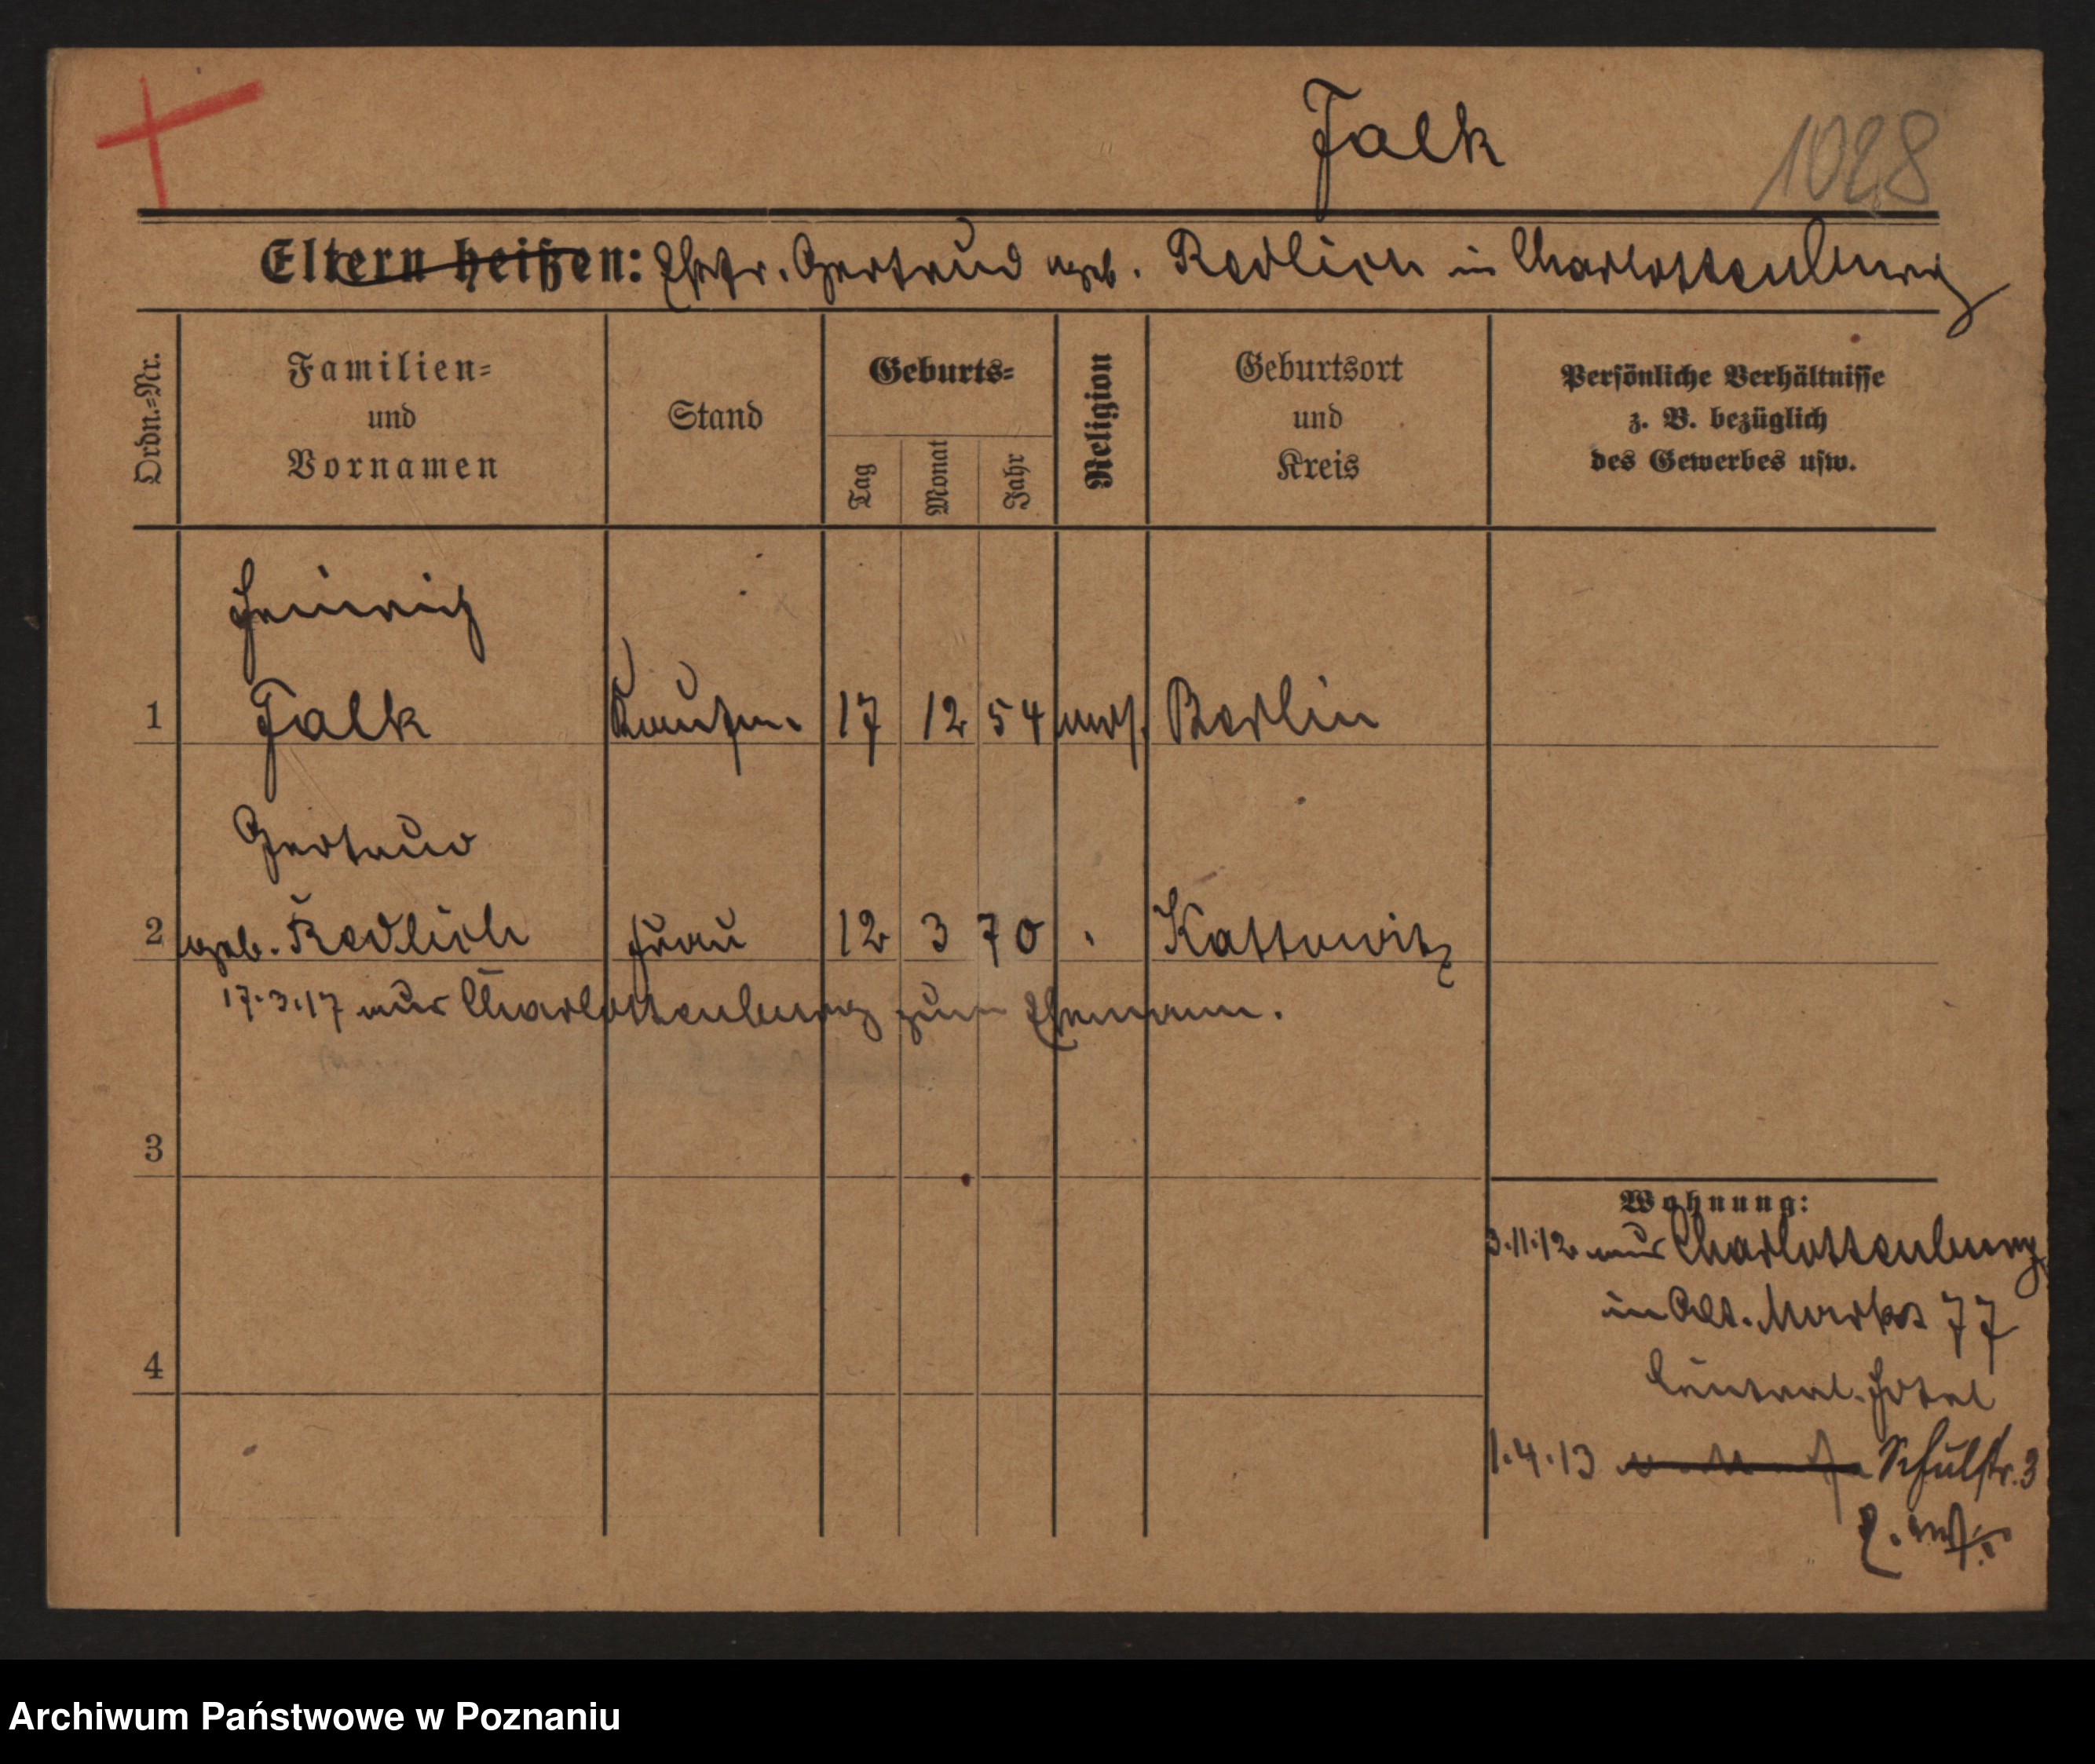 Falk 1028
Eltern heißen: Ehefr. Gertrud geb. Redlich in Charlottenburg
Ordn.=Nr.
Familien=
und
Vornamen
Stand
Geburts=
Tag
Monat
Jahr
Religion
Geburtsort
und
Kreis
Persönliche Verhältnisse
z. B. bezüglich
des Gewerbes usw.
Heinrich
1 Falk Kaufm. 17 12 54 mos. Berlin
Gertrud
2 geb. Redlich Frau 12 3 70 Kattowitz
17.3.17 aus Charlottenburg zum Ehemann.
3
Wohnung:
3.11.12 aus Charlottenburg
in Alt. Markt 77
4
Central-Hotel
1.4.13 Schulstr. 3
Archiwum Państwowe w Poznaniu